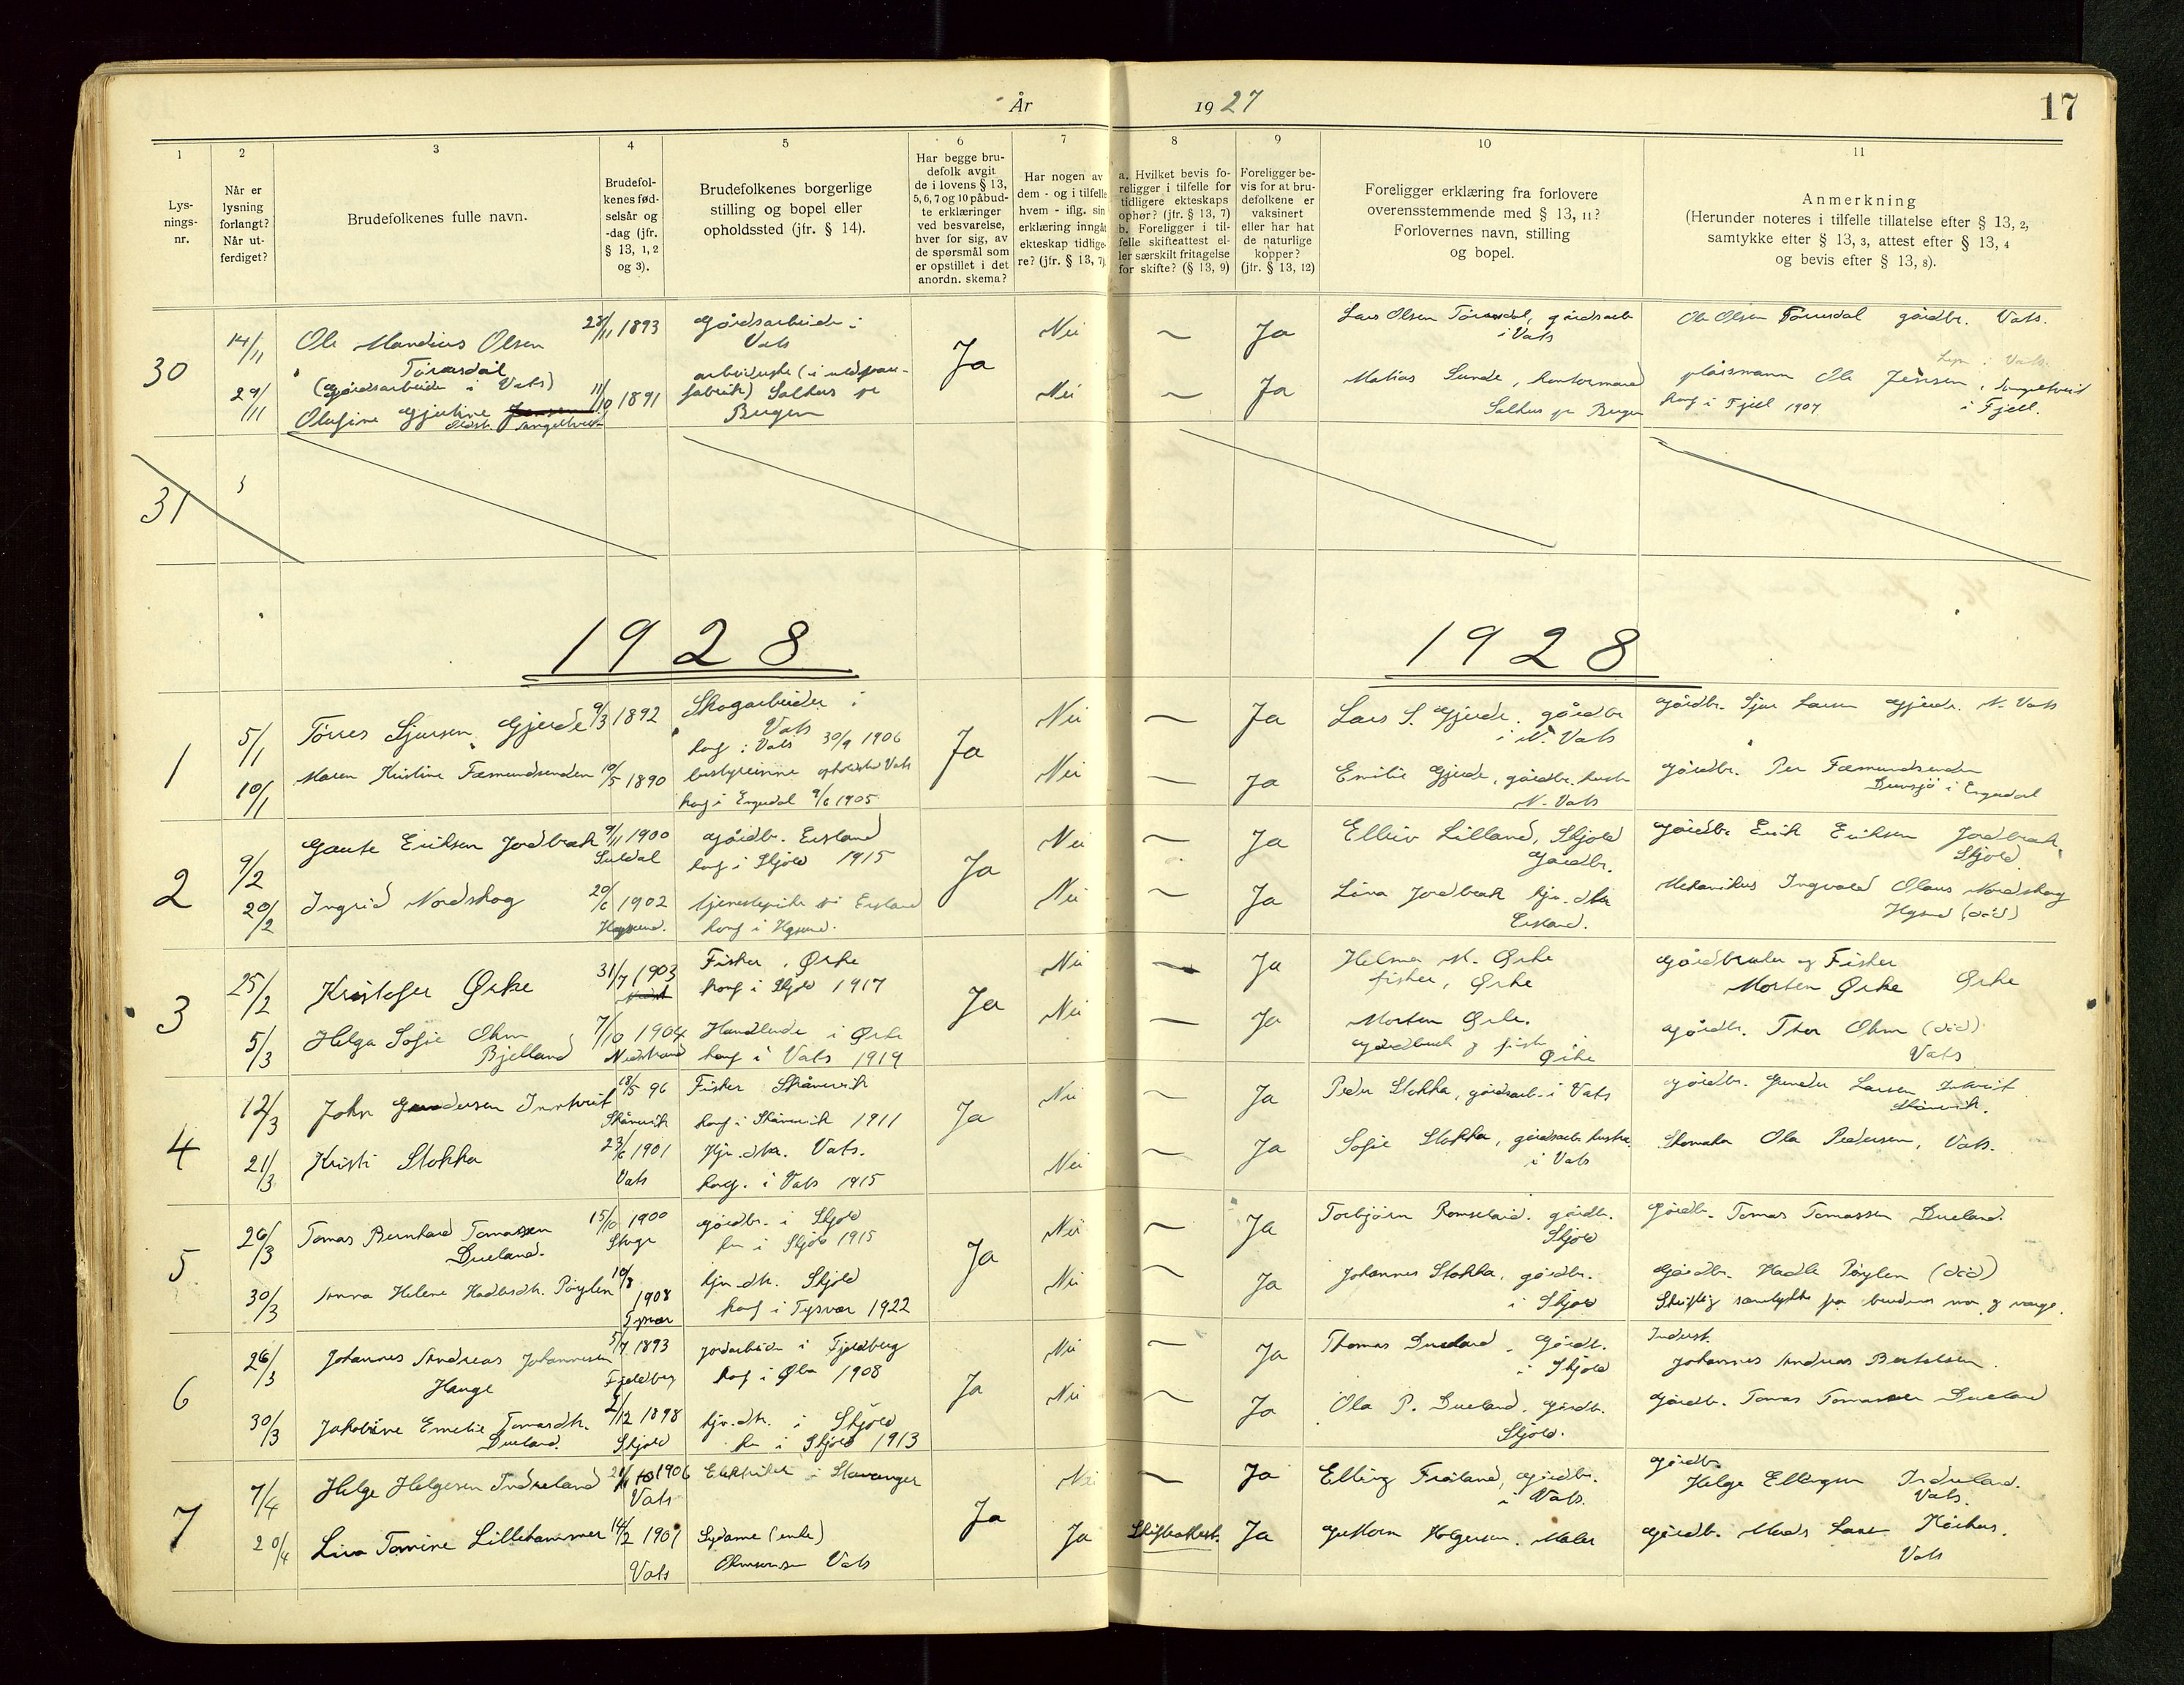 År
19 27
17
1
Lys-
nings-
nr.
2
Når er
lysning
forlangt?
Når ut-
ferdiget?
3
Brudefolkenes fulle navn.
4
Brudefol-
kenes fød-
selsår og
-dag (jfr.
§ 13, 1, 2
og 3).
5
Brudefolkenes borgerlige
stilling og bopel eller
opholdssted (jfr. § 14).
6
Har begge bru-
defolk avgit
de i lovens § 13,
5, 6, 7 og 10 påbud-
te erklæringer
ved besvarelse,
hver for sig, av
de spørsmål som
er opstillet i det
anordn. skema?
7
Har nogen av
dem - og i tilfelle
hvem - iflg. sin
erklæring inngåt
ekteskap tidlige-
re? (jfr. § 13, 7)
8
a. Hvilket bevis fo-
religger i tilfelle for
tidligere ekteskaps
ophør? (jfr. § 13, 7)
b. Foreligger i til-
felle skifteattest el-
ler særskilt fritagelse
for skifte? (§ 13, 9)
9
Foreligger be-
vis for at bru-
defolkene er
vaksinert
eller har hat
de naturlige
kopper?
(jfr. § 13, 12)
10
Foreligger erklæring fra forlovere
overensstemmende med § 13, 11?
Forlovernes navn, stilling
og bopel.
11
Anmerkning
(Herunder noteres i tilfelle tillatelse efter § 13, 2,
samtykke efter § 13, 3, attest efter § 13, 4
og bevis efter § 13, 8).
30
14/11
29/11
Ole Mandius Olsen
(Gårdsarbeider i Vats)
Olufine Gjertine
28/11 1893
11/10 1891
Gårdsarbeider i
Vats
fabrik) Salhus pr
Bergen
Ja
Nei
Nei
~
~
Ja
Ja
Lars Olsen gårdsarb
i Vats
Matias Sunde, kontormand
Salhus pr Bergen
Ole Olsen gårdbr. Vats.
plassmann Ole Jensen,
konf i Fjell 1907
i Fjell.
31
1928
1928
1
5/1
10/1
Tørres Sjursen Gjerde
Maren Kristine Fæmundsenden
9/3 1892
10/5 1890
Skogarbeider i
Vats
konf i Vats 30/9 1906
bustyrerinne opholdst Vats
konf i Engerdal 9/6 1905
Ja
Nei
Nei
~
~
Ja
Ja
Lars S. Gjerde. gårdbr
i N. Vats
Emilie Gjerde, gårdbr. hustr
N. Vats
Gårdbr. Sjur Larsen Gjerde. N. Vats
Gårdbr. Per Fæmundsenden
i Engerdal
2
9/2
20/2
Gaute Eriksen Jordbrek
Ingrid Nordskog
9/11 1900
Suldal
20/6 1902
Haugesund.
gårdbr. Eisland
konf i Skjold 1915
tjenestepike i Eisland
konf i Hgsund.
Ja
Nei
Nei
~
~
Ja
Ja
Elleiv Lilland, Skjold
Gårdbr.
Lina Jordbrek hjv. dtr
Eisland.
Gårdbr Erik Eriksen Jordbrek,
Skjold
Mekanikus Ingvald Olaus Nordskog
Hgsund (død)
3
25/2
5/3
Kristofer Ørke
Helga Sofie Ohm
Bjelland
31/7 1903
7/10 1904
Nedstrand
Fisker, Ørke
konf i Skjold 1917
Handlende i Ørke
konf i Vats 1919
Ja
Nei
Nei
~
~
Ja
Ja
Helmer M. Ørke
fisker, Ørke
Morten Ørke.
Gårdbruk og fisker
Ørke
Gårdbruker og Fisker
Morten Ørke Ørke
Gårdbr. Thor Ohm (død)
Vats
4
12/3
21/3
John Gundersen Inntveit
Kristi Stokka
18/5 96
Skånevik
23/6 1901
Vats
Fisker Skånevik
konf i Skånevik 1911
Hjv. dtr. Vats.
konf. i Vats 1915
Ja
Nei
Nei
~
~
Ja
Ja
Peder Stokka, gårdsarb. i Vats
Sofie Stokka, gårdsarb. hustru
i Vats
Gårdbr. Gunder Larsen Intveit
Skånevik.
Skomaker Ola Pedersen, Vats.
5
26/3
30/3
Tomas Bernhard Tomassen
Dueland.
Anna Helene Hadlesdtr. Pøylen
15/10 1900
10/8
1908
Tysvær
gårdbr. i Skjold
kon i Skjold 1915
hjv. dtr. Skjold
konf i Tysvær 1922
Ja
Nei
Nei
~
~
Ja
Ja
Torbjørn gårdbr.
Skjold
Johannes Stokka, gårdbr.
i Skjold
Gårdbr. Tomas Tomassen Dueland.
Gårdbr. Hadle Pøylen (død)
Skriftlig samtykke fra brudens mor og verge.
6
26/3
30/3
Johannes Andreas Johannesen
Hauge
Jakobine Emelie Tomasdtr.
Dueland.
5/7 1893
Fjeldberg
2/12 1898
Skjold
jordarbeider i Fjeldberg
konf i Ølen 1908
hjv. dtr. i Skjold
kon i Skjold 1913
Ja
Nei
Nei
~
~
Ja
Ja
Thomas Dueland. Gårdbr.
i Skjold
Ola P. Dueland. Gårdbr.
Skjold.
Johannes Andreas Bertelsen.
Gårdbr. Tomas Tomassen Dueland
7
7/4
20/4
Helge Helgesen Indreland
Lina Tomine Lillehammer
1906
Vats
14/2 1901
Vats
Elektriker i Stavanger
Sydame (enke)
Vats
Ja
Nei
Ja
~
Skifteattest.
Ja
Ja
Elling Frøiland, Gårdbr.
i Vats.
Guttorm Helgesen. Maler
Gårdbr.
Helge Ellingsen Indreland.
Vats.
Gårdbr. Mads Larsen
Vats